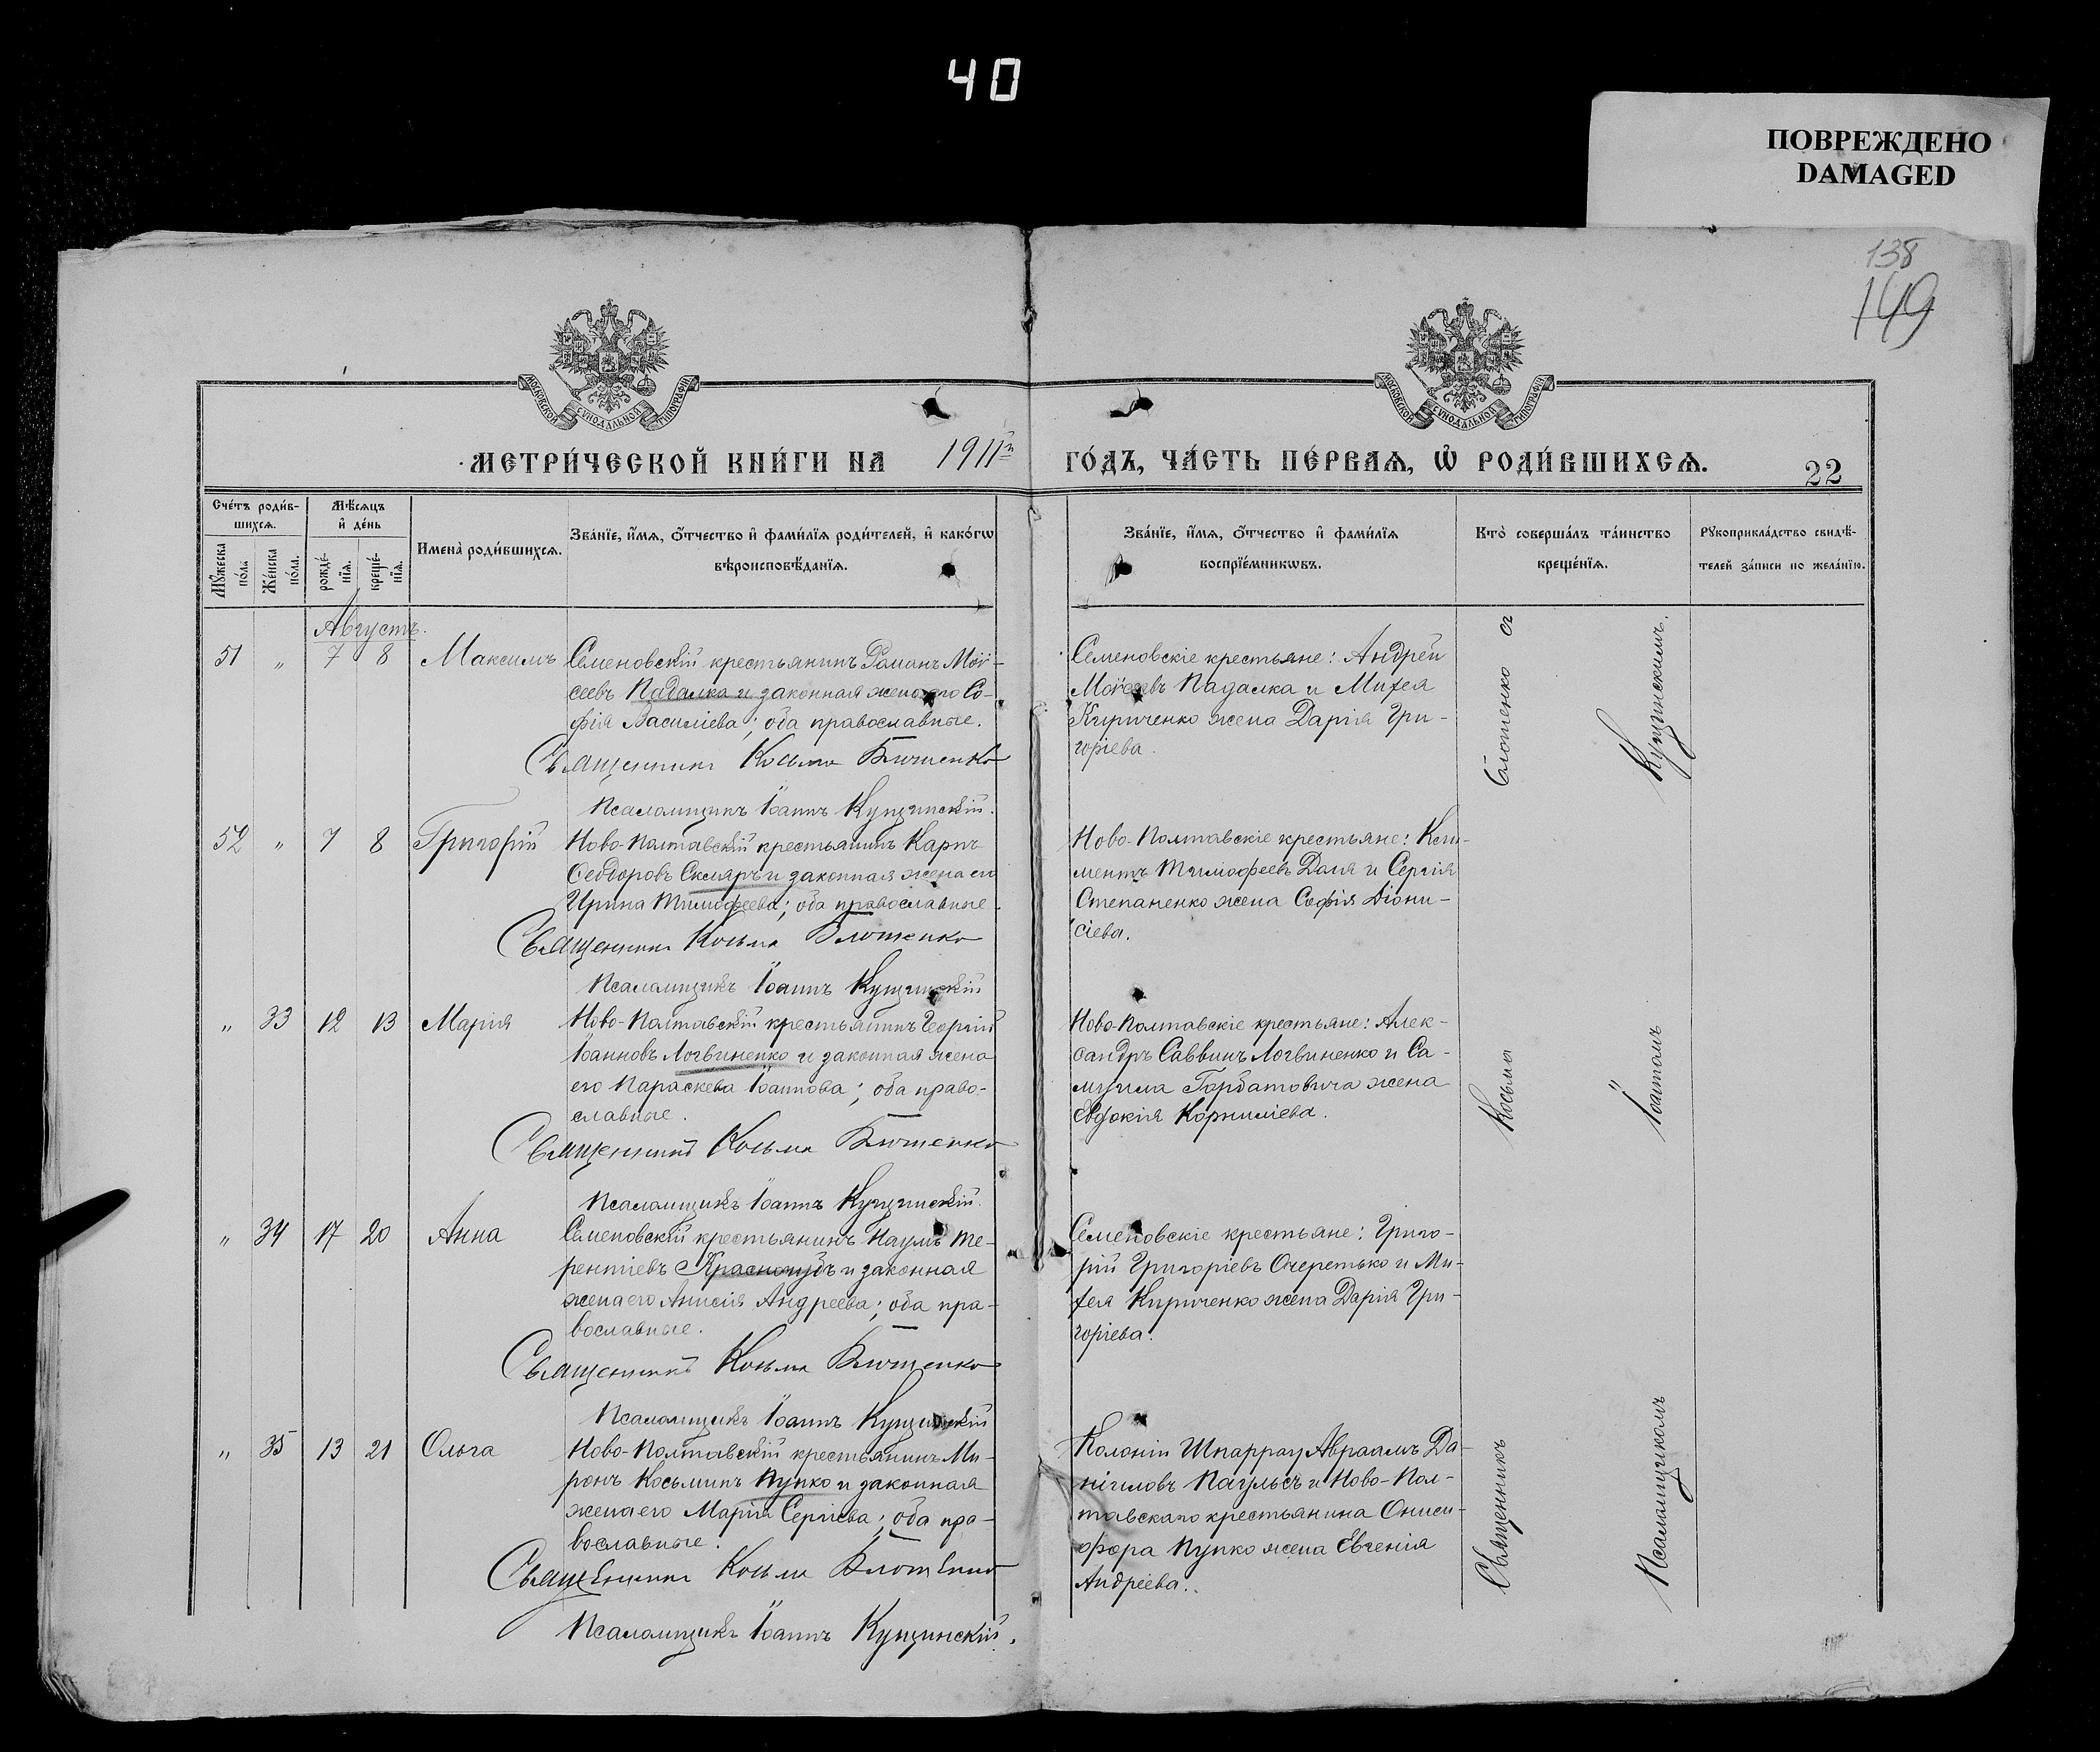 40
ПОВРЕЖДЕНО
DAMAGED
138
149
МОСКОВСКОЙ СѴНОДАЛЬНОЙ ТИПОГРАФІИ
МОСКОВСКОЙ СѴНОДАЛЬНОЙ ТИПОГРАФІИ
МЕТРИ́ЧЕСКОЙ КНИ́ГИ НА 1911й ГО́ДЪ, ЧА́СТЬ ПЕ́РВАѦ, Ѡ҆ РОДИ́ВШИХСѦ.
22
Сче́тъ роди́вшихсѧ.
Мꙋ́жеска по́ла
Же́нска по́ла.
Мѣ́сѧцъ и҆ де́нь
рожде́нїѧ.
креще́нїѧ.
Имена̀ роди́вшихсѧ.
Зва́нїе, и҆́мѧ, ѻ҆́тчество и҆ фами́лїѧ роди́телей, и҆ како́гѡ
вѣроисповѣ́данїѧ.
Зва́нїе, и҆́мѧ, ѻ҆́тчество и҆ фами́лїѧ
воспрїе́мникѡвъ.
Кто̀ соверша́лъ та́инство
креще́нїѧ.
Рꙋкоприкла́дство свидѣ́-
телей за́писи по жела́нїю.
Августъ.
51 „ 7 8 Максимъ Семеновскій крестьянинъ Романъ Мои-
сеевъ Падалка и законная жена его Со-
фія Василіева; оба православные.
Священникъ Косьма Блотенко
Псаломщикъ Іоаннъ Кущинскій.
Семеновскіе крестьяне: Андрей
Моисеевъ Падалка и Михея
Кириченко жена Дарія Гри-
горіева.
52 „ 7 8 Григорій Ново-Полтавскій крестьянинъ Карпъ
Ѳеодоровъ Скляръ и законная жена его
Ирина Тимоѳеева; оба православные.
Священникъ Косьма Блотенко
Псаломщикъ Іоаннъ Кущинскій
Ново-Полтавскіе крестьяне: Кли-
ментъ Тимофеевъ Даля и Сергія
Степаненко жена Софія Діони-
сіева.
„ 33 12 13 Марія Ново-Полтавскій крестьянинъ Георгій
Іоанновъ Логвиненко и законная жена
его Параскева Іоаннова; оба право-
славные.
Священникъ Косьма Блотенко
Псаломщикъ Іоаннъ Кущинскій.
Ново-Полтавскіе крестьяне: Алек-
сандръ Саввинъ Логвиненко и Са-
муила Горбатовича жена
Евдокія Корниліева.
„ 34 17 20 Анна Семеновскій крестьянинъ Наумъ Те-
рентіевъ Краснокутъ и законная
жена его Анисія Андреева; оба пра-
вославные.
Священникъ Косьма Блотенко
Псаломщикъ Іоаннъ Кущинскій
Семеновскіе крестьяне: Григо-
рій Григоріевъ Очеретько и Ми-
хея Кириченко жена Дарія Гри-
горіева.
„ 35 13 21 Ольга Ново-Полтавскій крестьянинъ Ми-
ронъ Косьминъ Пупко и законная
жена его Марія Сергіева; оба пра-
вославные.
Священникъ Косьма Блотенко
Псаломщикъ Іоаннъ Кущинскій.
Колоніи Шпаррау Авраамъ Да-
ніиловъ Паульсъ и Ново-Пол-
тавскаго крестьянина Ониси-
фора Пупко жена Евгенія
Андреева.
Священникъ Косьма Блотенко съ
Псаломщикомъ Іоанномъ Кущинскимъ.